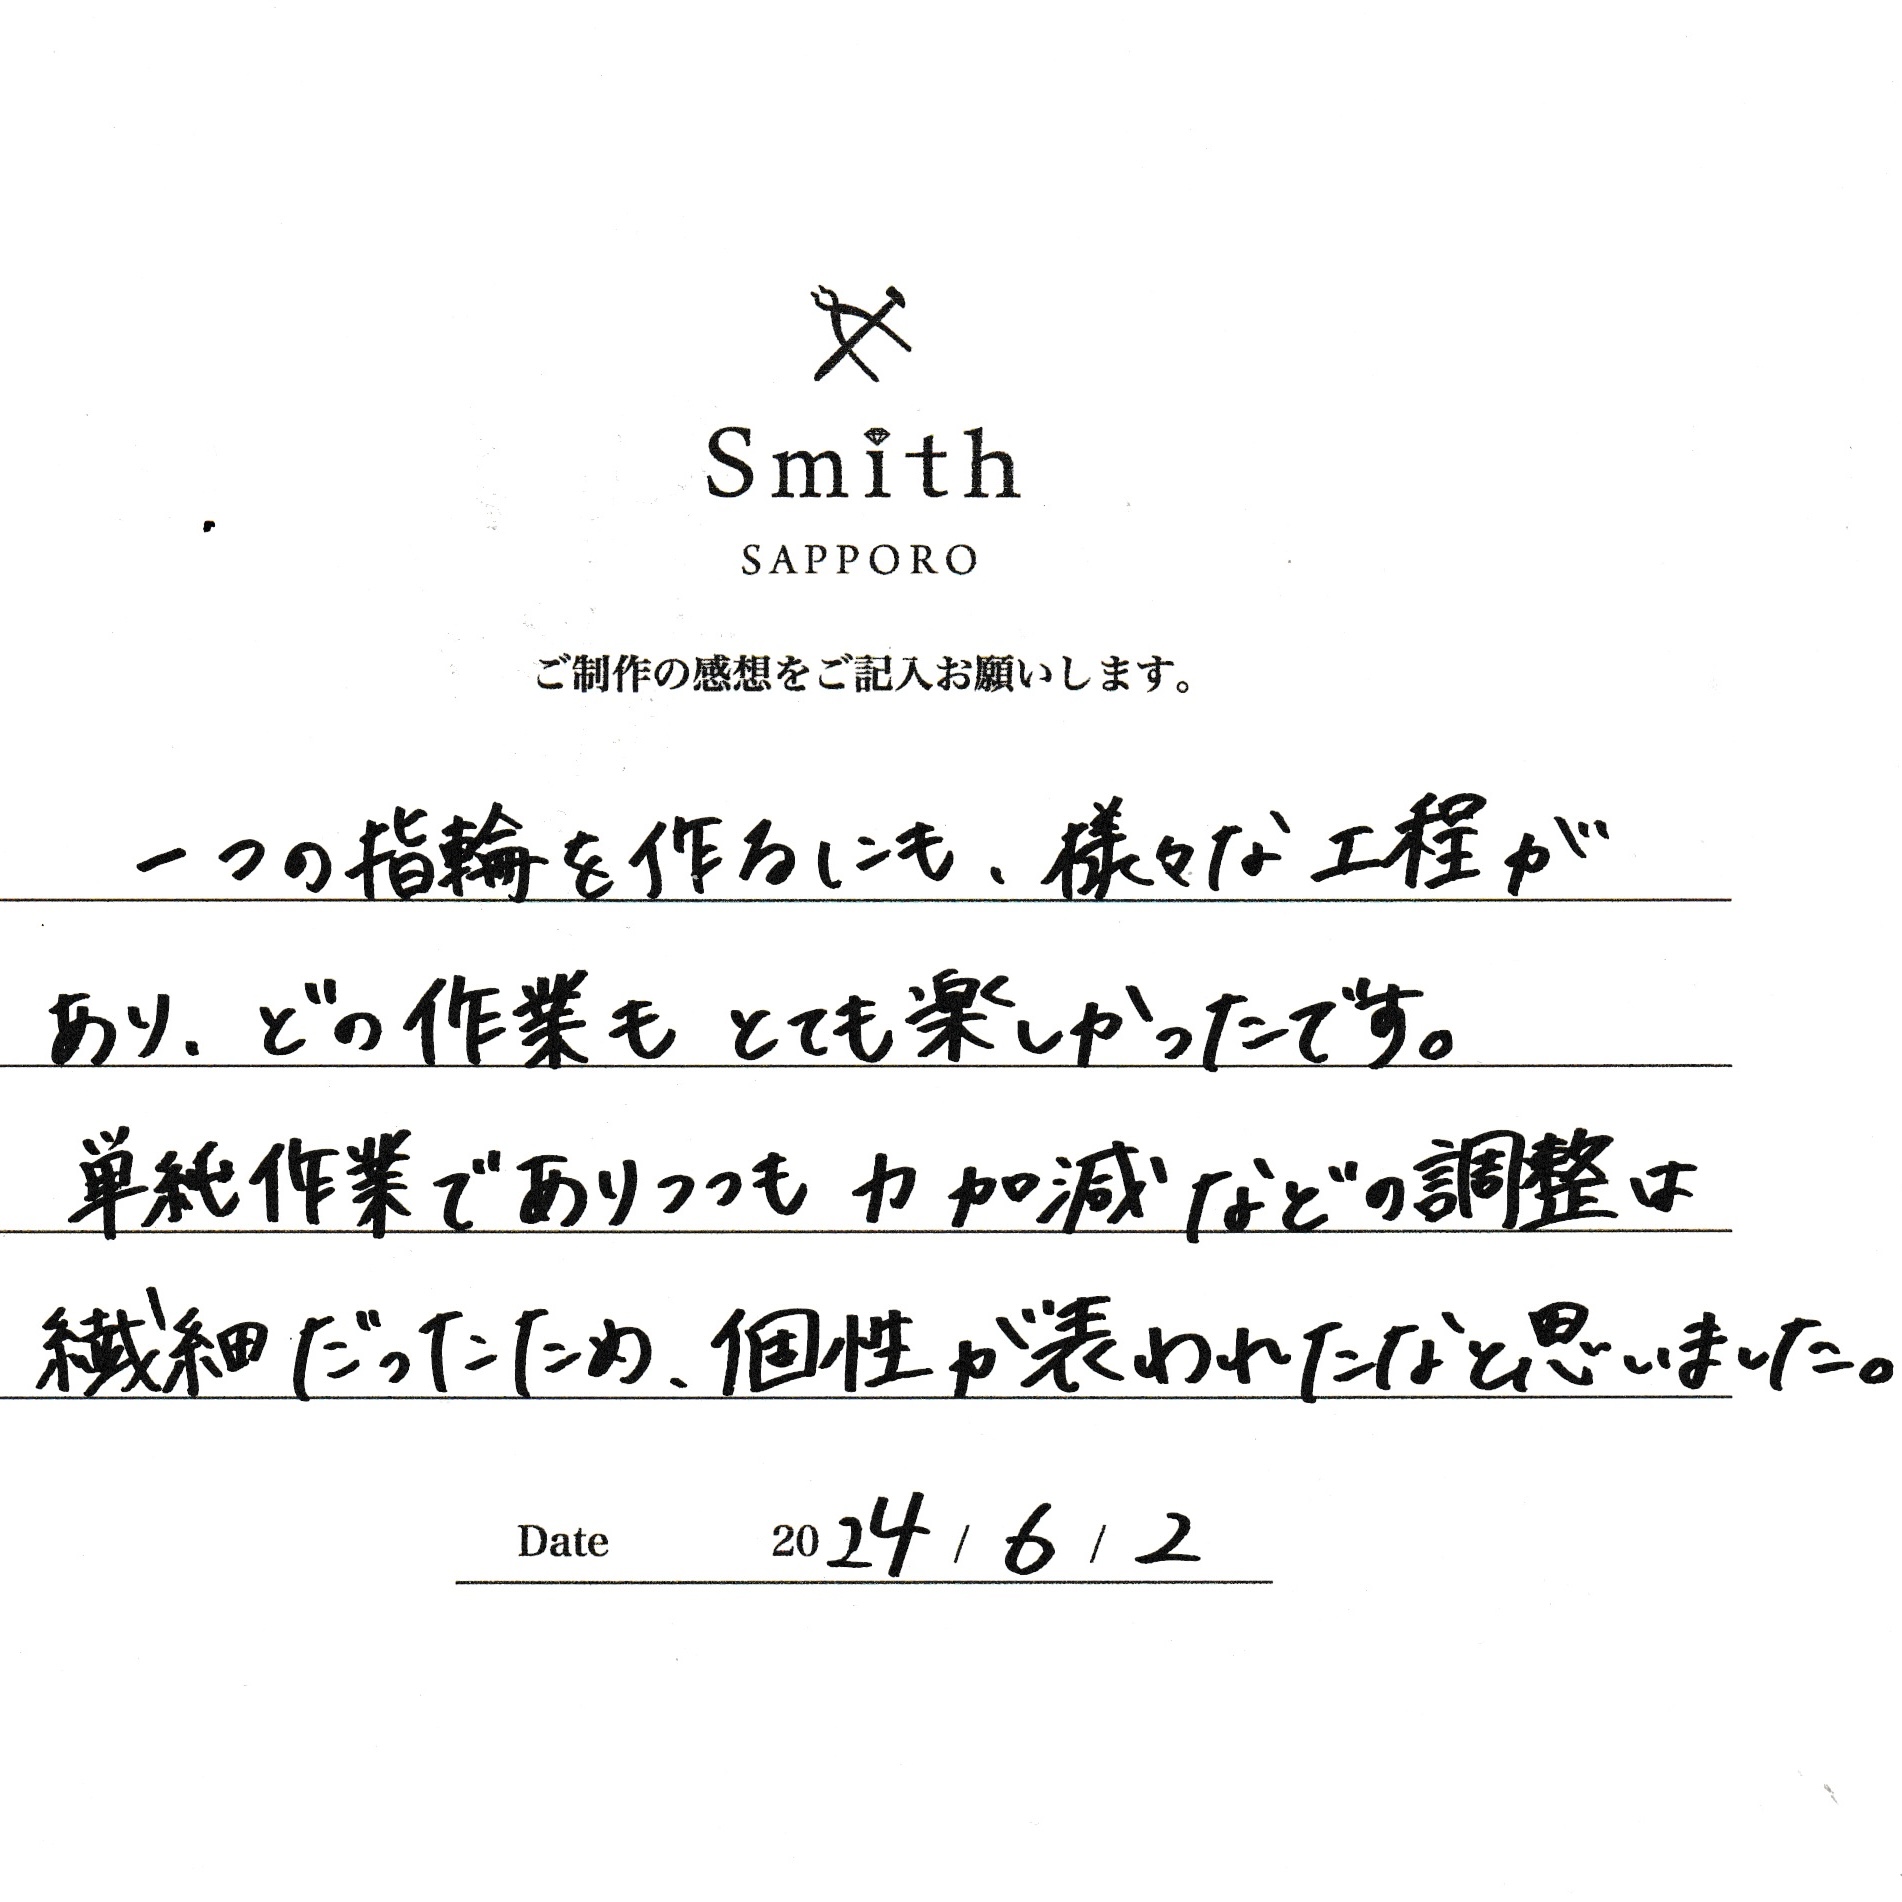 Smith
SAPPORO
ご制作の感想をご記入お願いします。
一つの指輪を作るにも、様々な工程が
あり、どの作業もとても楽しかったです。
単純作業でありつつも力加減などの調整は
繊細だったため、個性が表われたなと思いました。
Date 2024 / 6 / 2